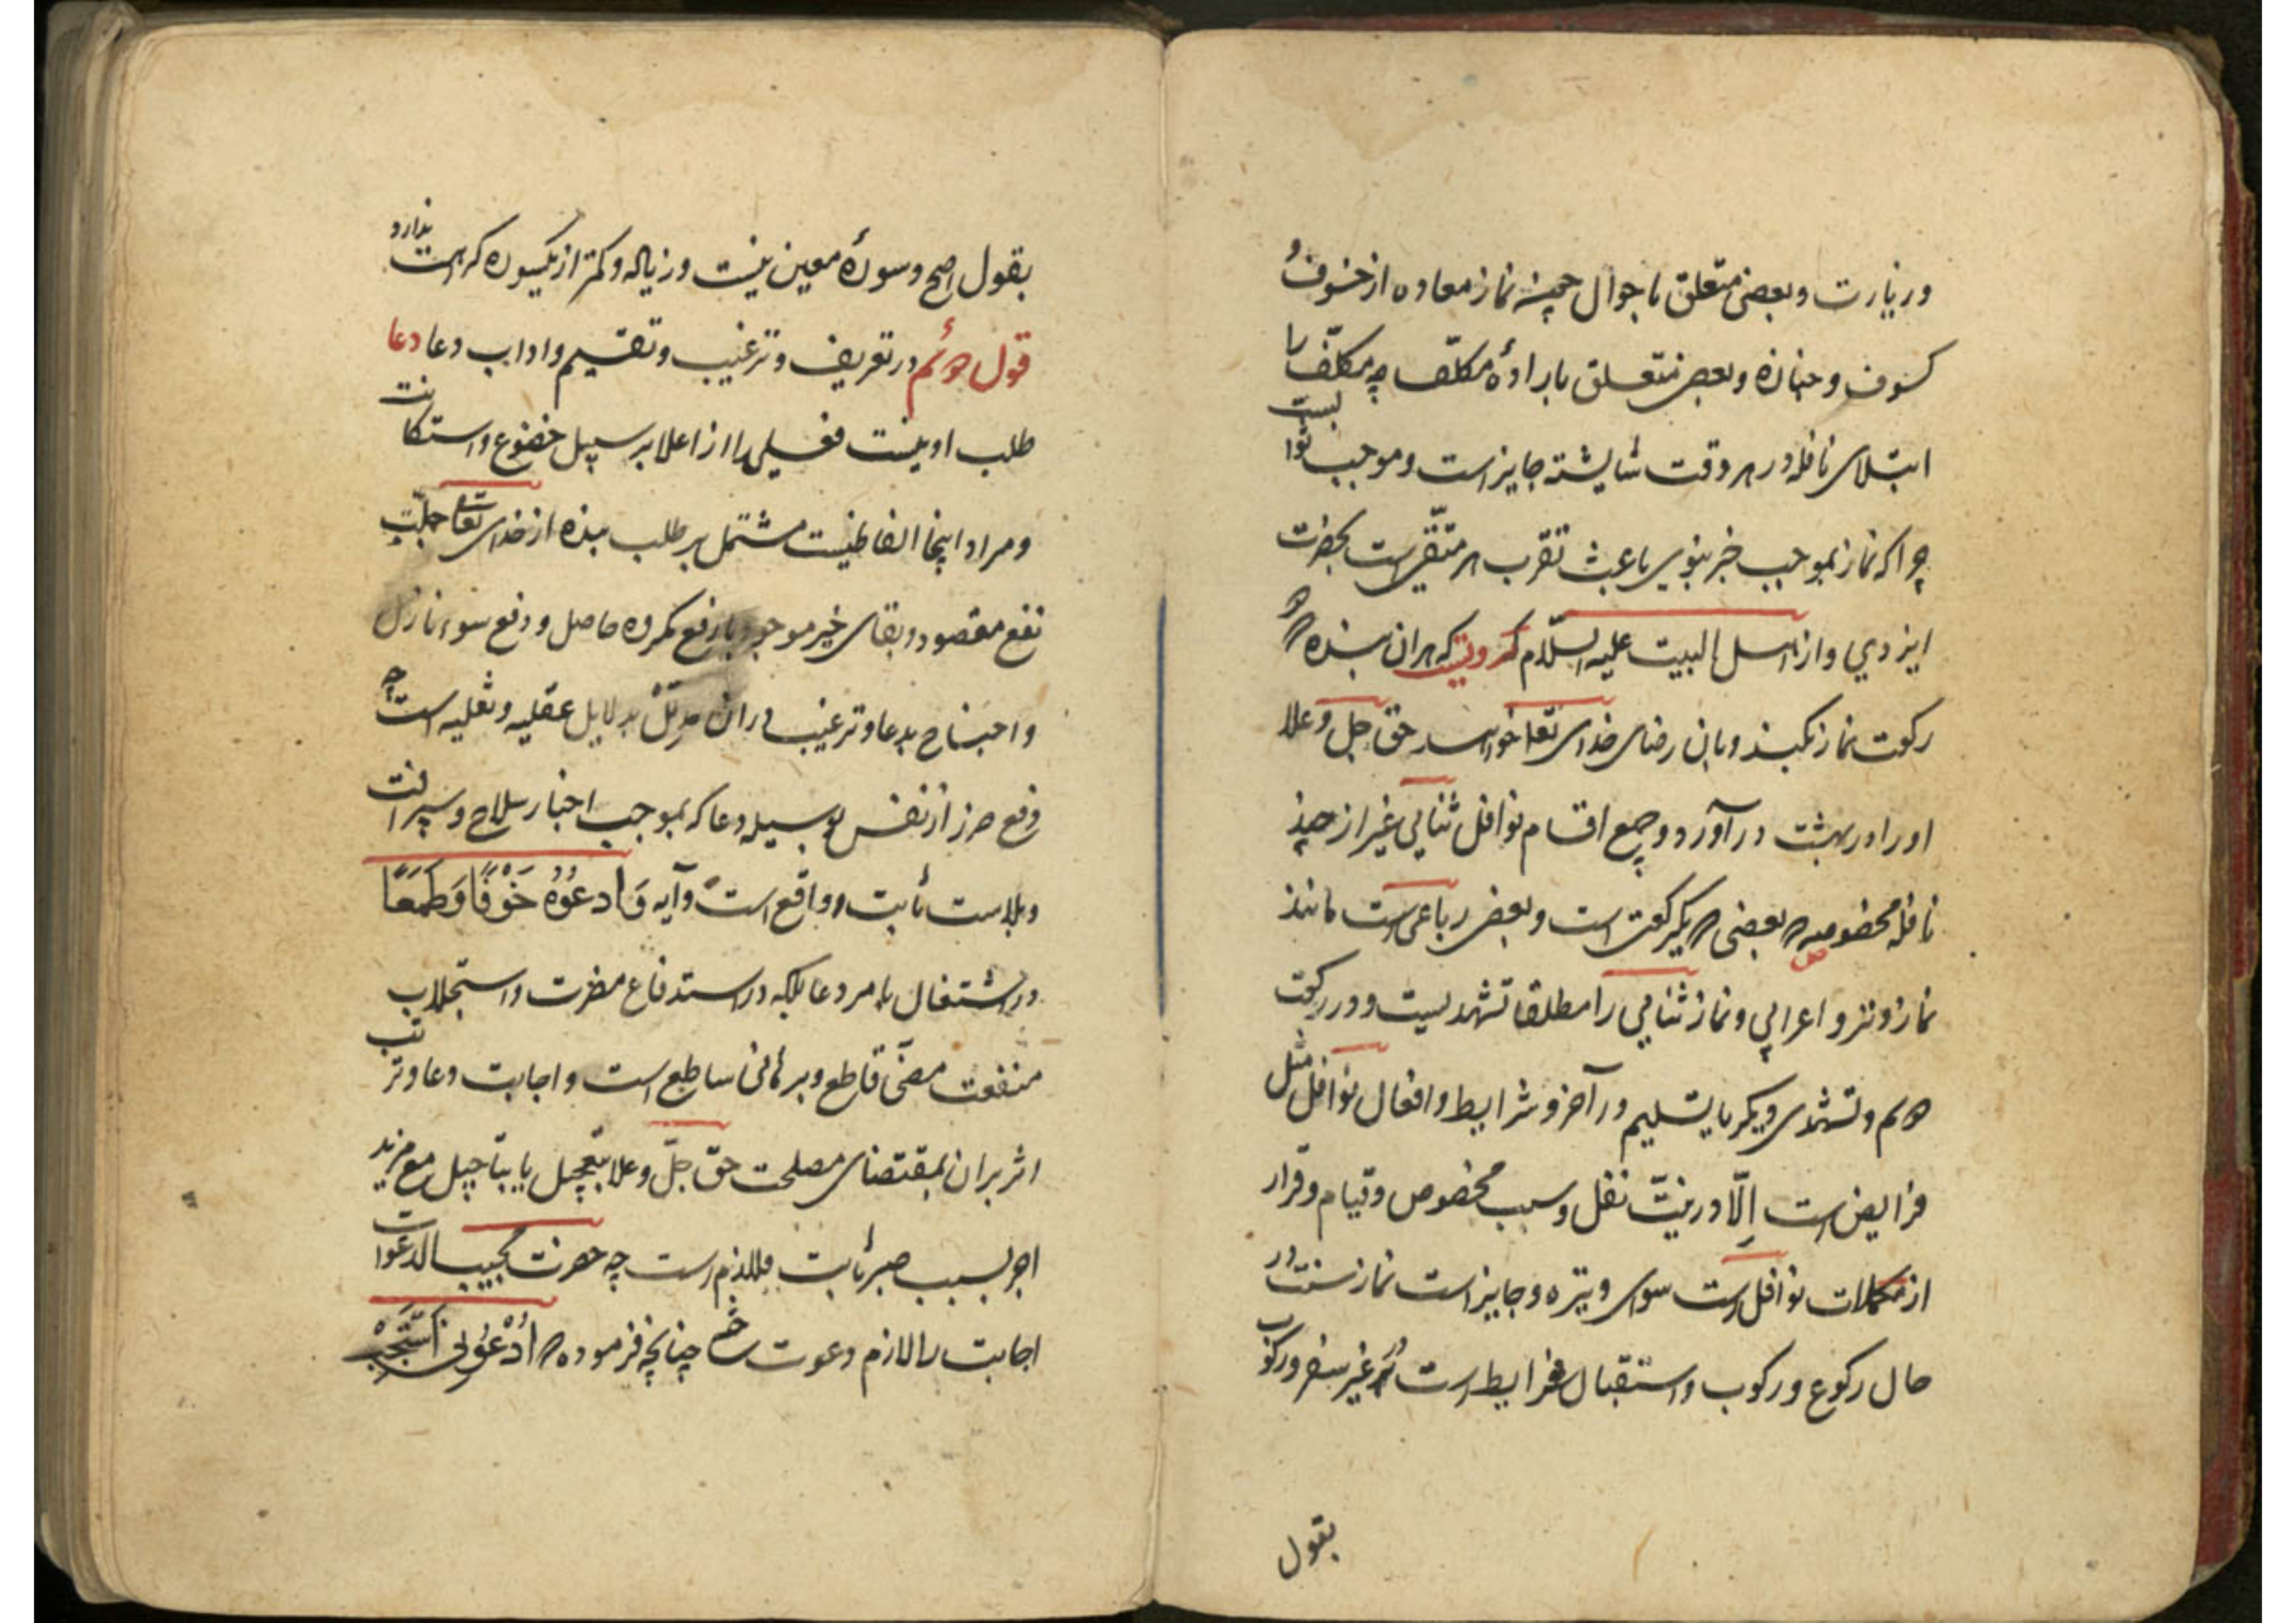 و زیارت و بعضی متعلق باحوال چنانچه نماز معاده از خسوف و
کسوف و جنازه و بعضی متعلق باراده مکلف چه مکلف را
ابتدای نافله در هر وقت شایسته جایز است و موجب ثوابست
چرا که نماز بموجب خبر نبوی باعث تقرب هر متقی است بحضرت
ایزدی و از اهل البیت علیه السلام مرویست که هر آن بنده که دو
رکعت نماز بکند و بان رضای خدای تعا خواهد حق جل و علا
او را در بهشت در آورد و جمیع اقسام نوافل ثنایی غیر از چند
نافله مخصوصه که بعضی یکرکعتی است و بعضی رباعی است مانند
نماز وتر و اعرابی و نماز ثنایی را مطلقا تشهدیست در رکعت
دوم و تشهدی دیگر با تسلیم در آخر و شرایط و افعال نوافل مثل
فرایض است اِلّا در نیّت نفل و سبب مخصوص و قیام و قرار
از مکملات نوافل است سوای وتیره و جایز است نماز سنت در
حال رکوع و رکوب و استقبال شرایط است در غیر سفر و رکوب
بقول
بقول اصح و سورهٔ معین نیست و زیاله و کمتر از یکسوره کراهت ندارد
قول دوم در تعریف و ترغیب و تقسیم و اداب دعا دعا
طلب ادنیست فعلی را از اعلا بر سبیل خضوع و استکانت
و مراد اینجا الفاظیست مشتمل بر طلب بنده از خدای تعا جلب
نفع مقصود و بقای خیر موجود یا رفع مکروه حاصل و دفع سوء نازل
و احتیاج بدعا و ترغیب در ان مدلل بدلایل عقلیه و نقلیه است چه
دفع ضرر از نفس بوسیله دعا که بموجب اخبار سلاح و سپر افت
و بلاست ثابت و واقع است و آیه وَادعُوُه خَوْفًا وَطَمَعًا
در اشتغال بامر دعا بلکه در استدفاع مضرت و استجلاب
منفعت نصّی قاطع و برهانی ساطع است و اجابت دعا و ترتب
اثر بر ان بمقتضای مصلحت حق جلّ و علا بتعجیل یا بتاجیل مع مزید
اجر بسبب صبر ثابت و لازم است چه حضرت مجیب الدعوات
اجابت را لازم دعوت ساخته چنانچه فرموده که اُدْعُوْنی اَسْتَجِبْ